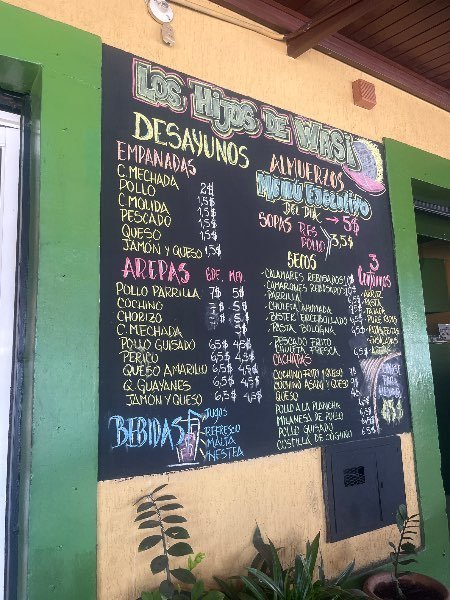 Los Hijos DE WASI
DESAYUNOS
EMPANADAS
C. MECHADA 2$
POLLO 1,5$
C. MOLIDA 1,5$
PESCADO 1,5$
QUESO 1,5$
JAMÓN Y QUESO 1,5$
AREPAS GDE. MED.
POLLO PARRILLA 7$ 5$
COCHINO 5$
CHORIZO 5$
C. MECHADA 5$
POLLO GUISADO 6,5$ 4,5$
PERICO 6,5$ 4,5$
QUESO AMARILLO 6,5$ 4,5$
Q. GUAYANES 6,5$ 4,5$
JAMÓN Y QUESO 6,5$ 4,5$
BEBIDAS
JUGOS
REFRESCO
MALTA
NESTEA
ALMUERZOS
MENÚ EJECUTIVO
DEL DÍA → 5$
SOPAS RES
POLLO 3,5$
SECOS
-CALAMARES REBOSADOS
-CAMARONES REBOSADOS
-PARRILLA
-CHULETA AHUMADA
-BISTEK ENCEBOLLADO
-PASTA BOLOGNA
-PESCADO FRITO
-CHULETA FRESCA
CACHAPAS
COCHINO FRITO Y QUESO
COCHINO ASADO Y QUESO
QUESO
POLLO A LA PLANCHA
MILANESA DE POLLO
POLLO GUISADO
COSTILLA DE COCHINO
3
CONTORNOS
-ARROZ
-PASTA
-TAJADA